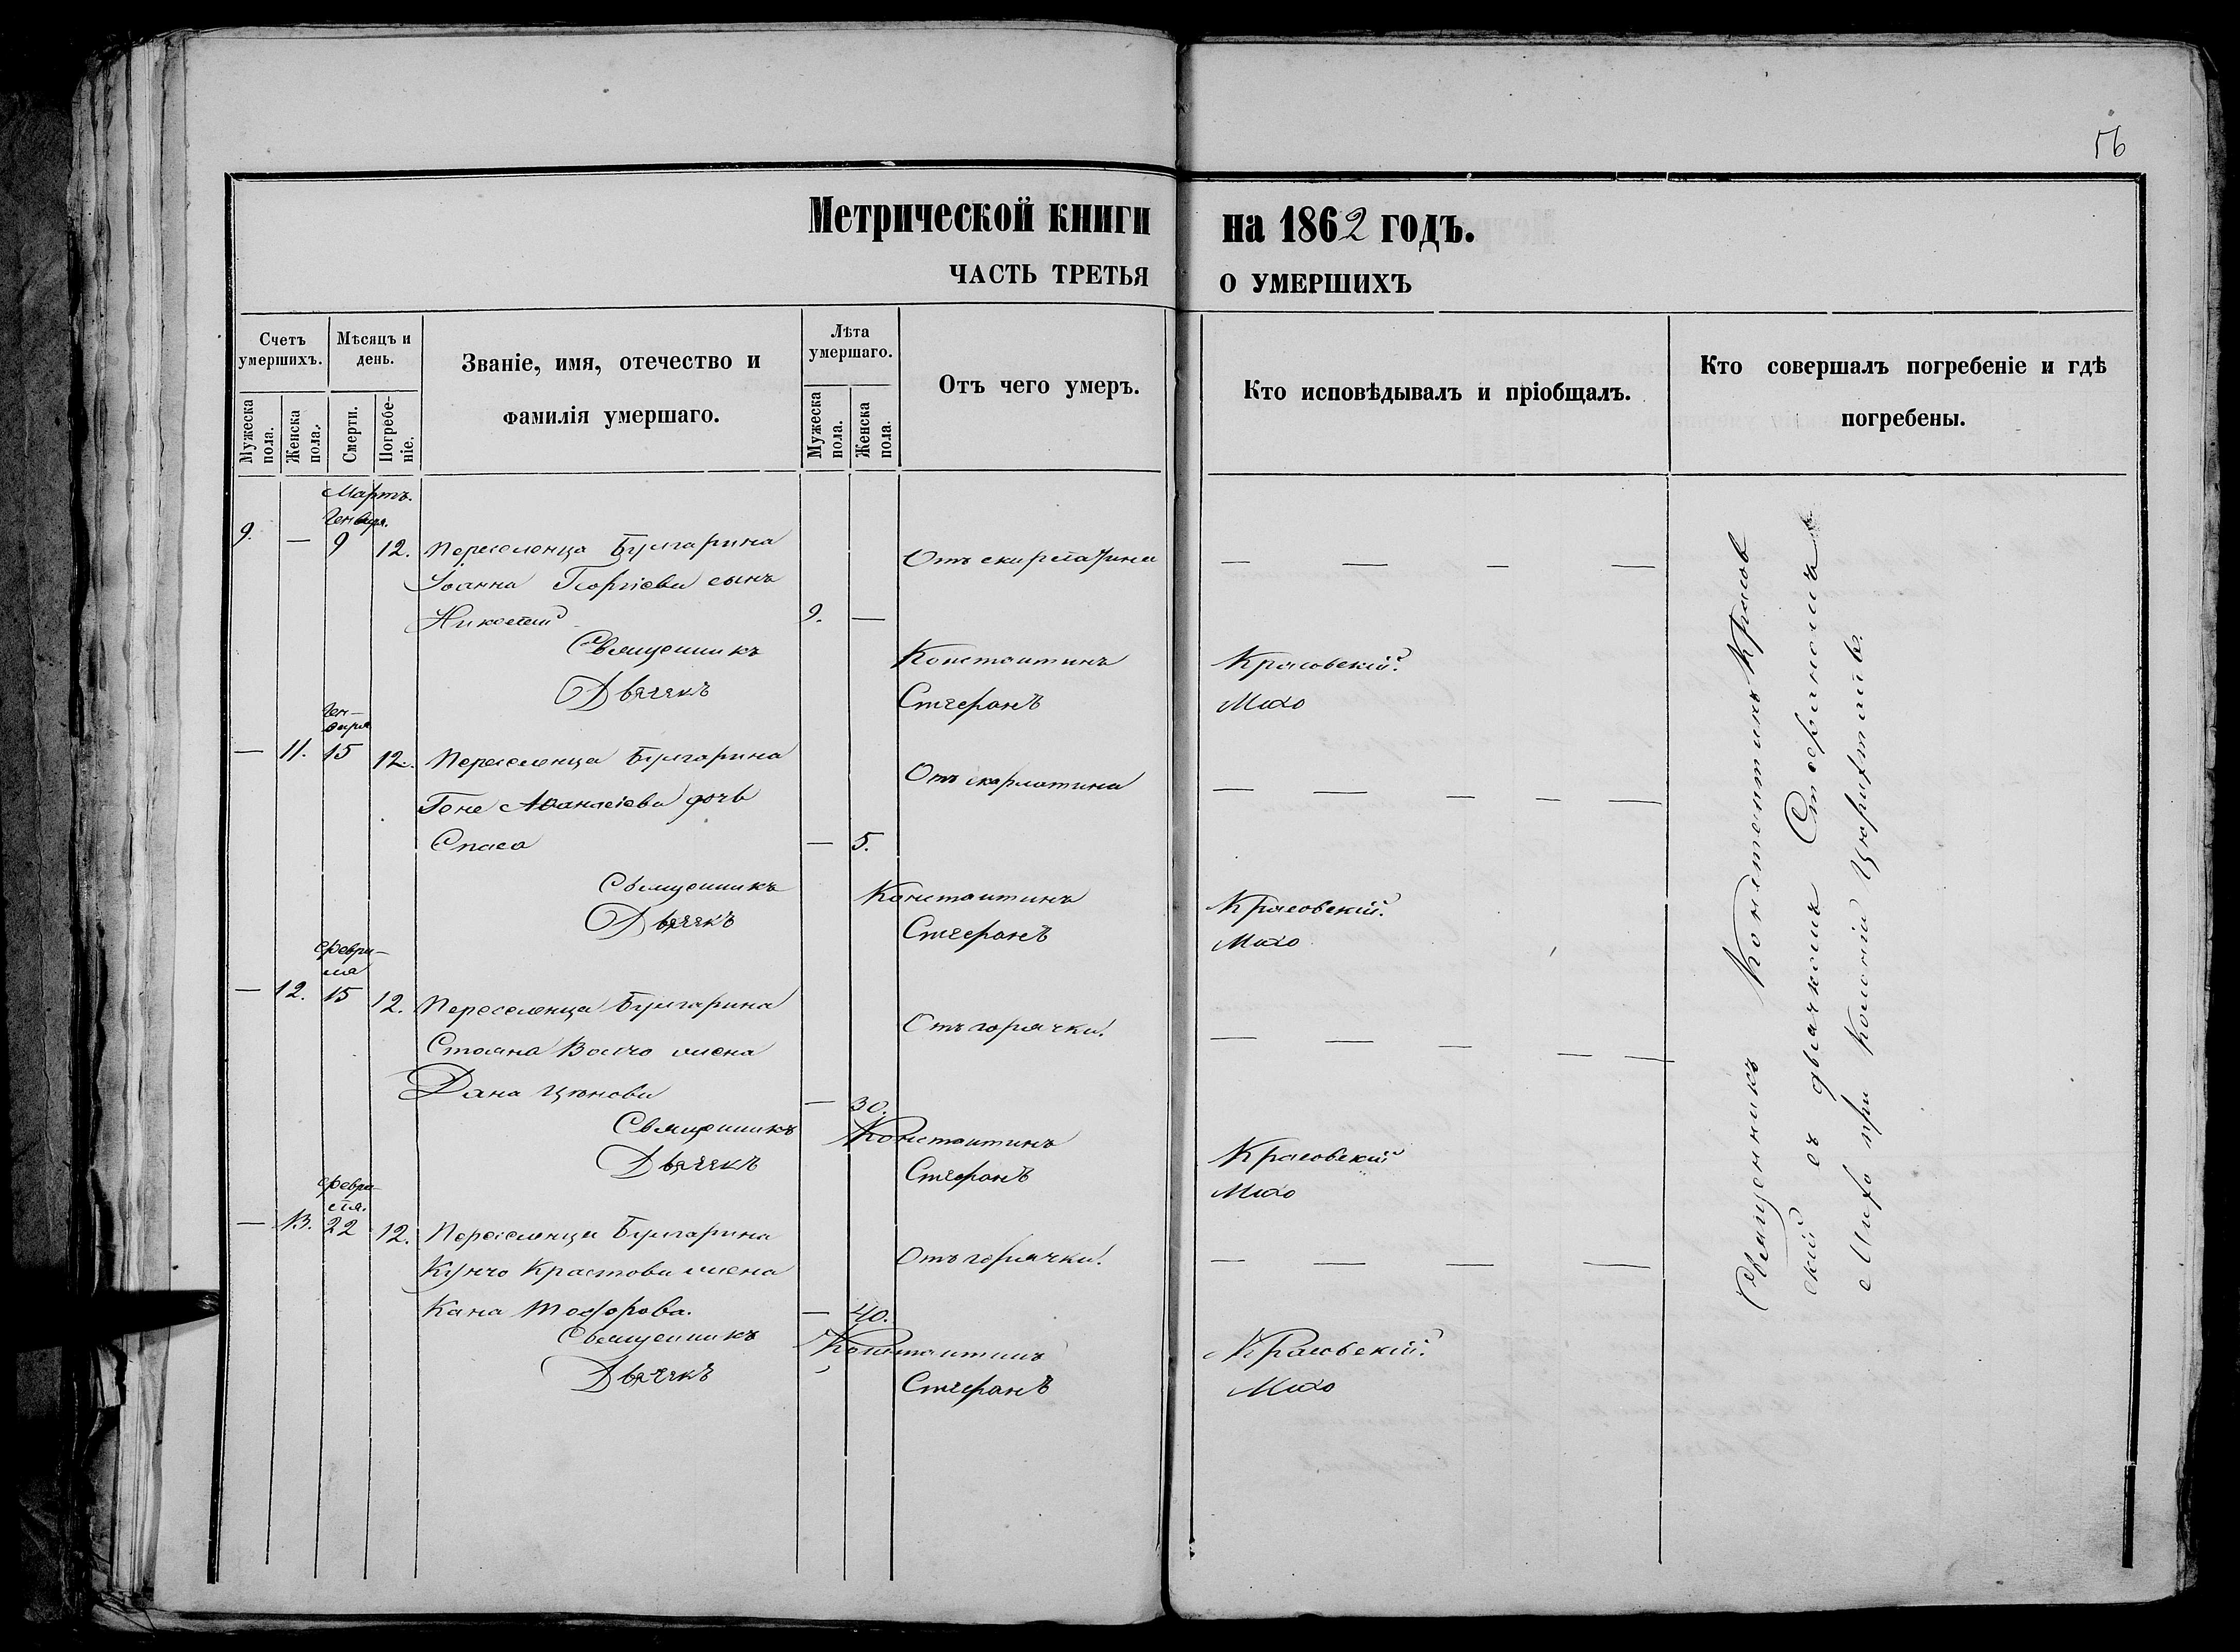 56
Метрической книги на 1862 годъ.
ЧАСТЬ ТРЕТЬЯ О УМЕРШИХЪ
Счетъ умершихъ.
Мѣсяцъ и день.
Званіе, имя, отечество и фамилія умершаго.
Лѣта умершаго.
Отъ чего умеръ.
Кто исповѣдывалъ и пріобщалъ.
Кто совершалъ погребеніе и гдѣ погребены.
Мужеска пола.
Женска пола.
Смерти.
Погребеніе.
Мужеска пола.
Женска пола.
Мартъ.
Генваря.
9. — 9 12. Переселенца Булгарина Отъ скарлатина — — — —
Іоанна Георгіева сынъ
9. —
Священникъ Константинъ Красовскій.
Дьячекъ Стефанъ Михо
Ген-
варя
— 11. 15 12. Переселенца Булгарина Отъ скарлатина — — — — —
Гене Афанасіева дочь
Спаса — 5.
Священникъ Константинъ Красовскій.
Дьячекъ Стефанъ Михо
Февра-
ля
— 12. 15 12. Переселенца Булгарина Отъ горячки. — — — — —
Стояна Волчо жена
Дана Цѣнова — 30.
Священникъ Константинъ Красовскій
Дьячекъ Стефанъ Михо
Февра-
ля.
— 13. 22 12. Переселенца Булгарина Отъ горячки. — — — —
Кунчо Крастова жена
Кана Тодорова. — 40.
Священникъ Константинъ Красовскій.
Дьячекъ Стефанъ Михо
Священникъ Константинъ Красов
скій съ дьячкомъ Стефаномъ
Михо при колоніи